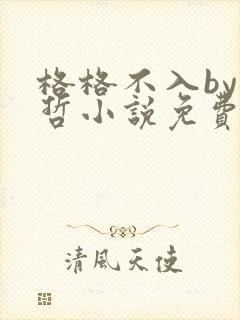 格格不入by
哲小說免費
清風天使